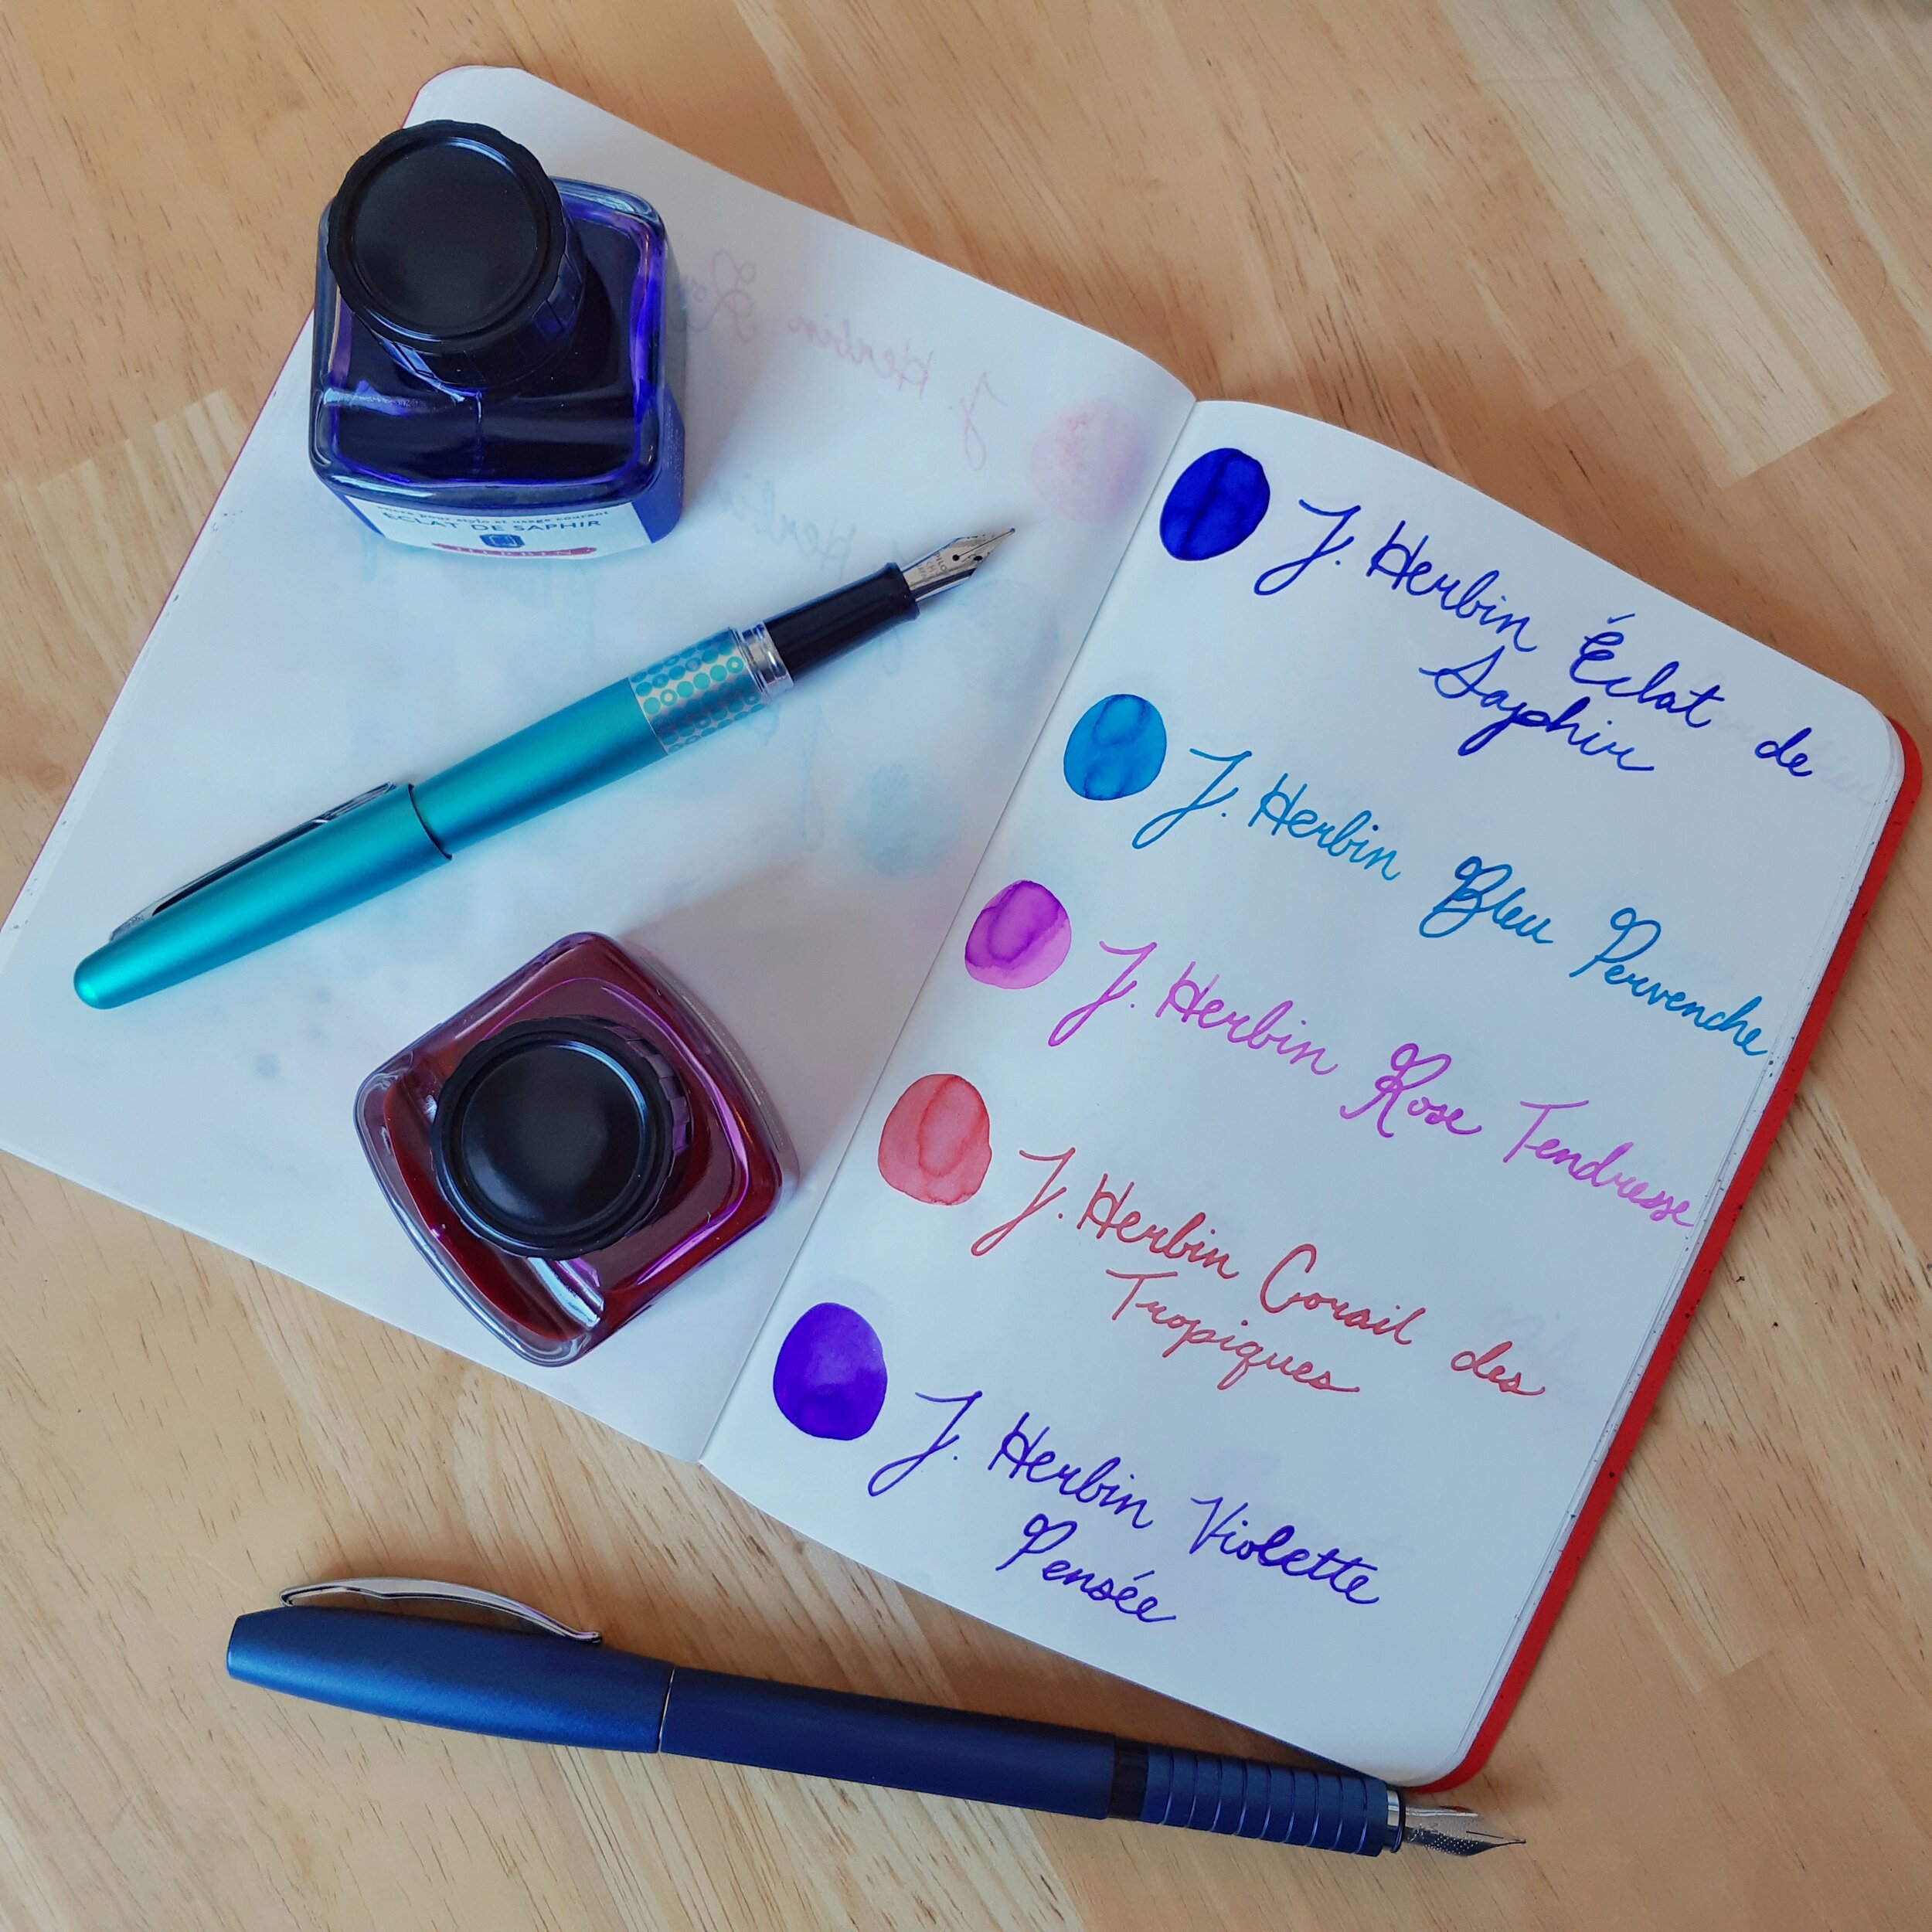 encre pour stylo et usage courant
ECLAT DE SAPHIR
HERBIN
J. Herbin
PILOT
J. Herbin Éclat de
Saphir
J. Herbin Bleu Pervenche
J. Herbin Rose Tendresse
J. Herbin Corail des
Tropiques
J. Herbin Violette
Pensée